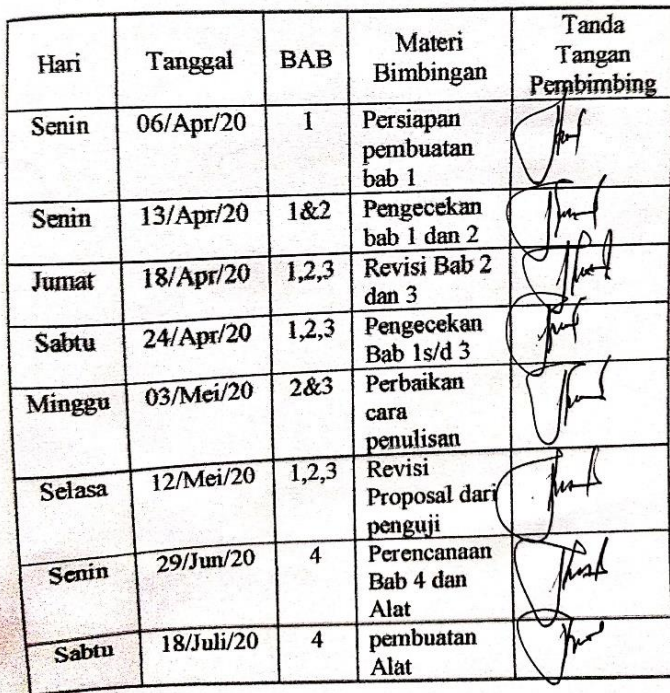 Hari Tanggal BAB Materi Bimbingan Tanda Tangan Pembimbing
Senin 06/Apr/20 1 Persiapan
pembuatan
bab 1
Senin 13/Apr/20 1&2 Pengecekan
bab 1 dan 2
Jumat 18/Apr/20 1,2,3 Revisi Bab 2
dan 3
Sabtu 24/Apr/20 1,2,3 Pengecekan
Bab 1s/d 3
Minggu 03/Mei/20 2&3 Perbaikan
cara
penulisan
Selasa 12/Mei/20 1,2,3 Revisi
Proposal dari
penguji
Senin 29/Jun/20 4 Perencanaan
Bab 4 dan
Alat
Sabtu 18/Juli/20 4 pembuatan
Alat